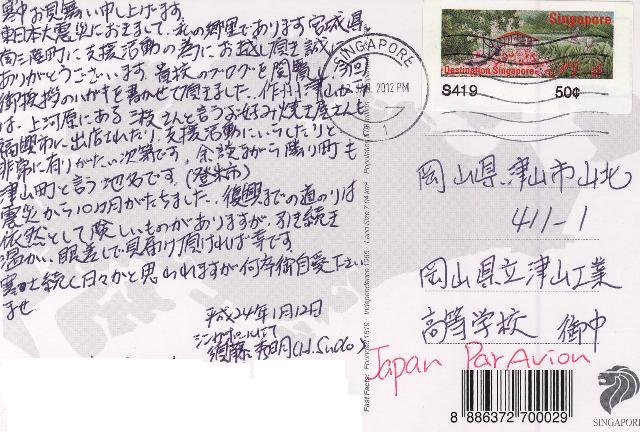 寒中お見舞い申し上げます
東日本大震災におきまして、私の郷里であります宮城県
南三陸町に支援活動の為にお越し頂き誠に
ありがとうございます 貴校のブログを閲覧し、今回
御挨拶のハガキを書かせて頂きました。作州津山
は、上河原にある三枝さんと言うお好み焼き屋さんも
福興市に出店されたり、支援活動にいらしたりと
非常に有りがたい次第です。余談ながら隣り町も
津山町と言う地名です。(登米市)
震災から10ヵ月がたちました。復興までの道のりは
依然として険しいものがありますが、引き続き
温かい眼差しで見届け頂ければ幸です
寒さ続く日々かと思われますが何卒御自愛下さい
ませ
平成24年1月12日
シンガポールにて
須藤 (H.Sudo)
Fast Facts: Founded 1819 Independence 1965 Land Size 704 km² Population
SINGAPORE
2012 PM
1
Singapore
Destination Singapore
S419 50¢
岡山県津山市山北
411-1
岡山県立津山工業
高等学校 御中
Japan Par Avion
8 886372 700029
SINGAPORE